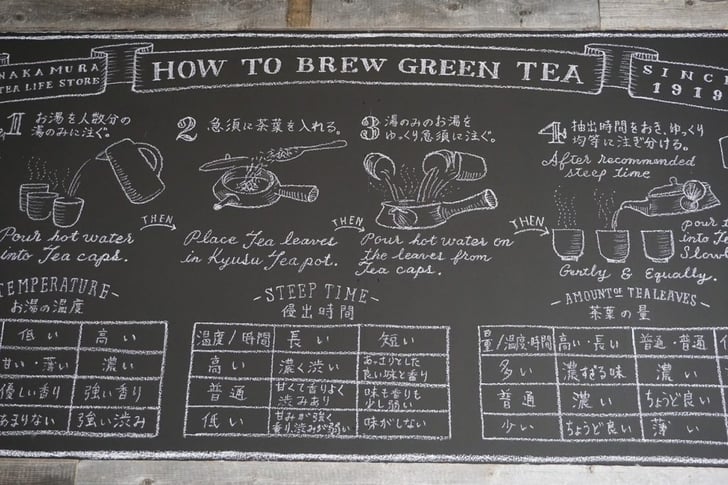 NAKAMURA
TEA LIFE STORE
HOW TO BREW GREEN TEA
SINCE
1919
1 お湯を人数分の
湯のみに注ぐ。
Pour hot water
into Tea caps.
THEN
2 急須に茶葉を入れる。
Place Tea leaves
in Kyusu Tea pot.
THEN
3 湯のみのお湯を
ゆっくり急須に注ぐ。
Pour hot water on
the leaves from
Tea caps.
THEN
4 抽出時間をおき、ゆっくり
均等に注ぎ分ける。
After recommended
steep time
Pour
into Te
Slowl
Gently & Equally.
TEMPERATURE
お湯の温度
低い 高い
甘い・薄い 濃い
優しい香り 強い香り
あまりない 強い渋み
-STEEP TIME-
優出時間
温度/時間 長い 短い
高い 濃く渋い あっさりとした
良い味と香り
普通 甘くて香りよく
渋みあり 味も香りも
少し弱い
低い 甘みが強く
香り、渋みが弱い 味がしない
-AMOUNT OF TEA LEAVES-
茶葉の量
量/温度・時間 高い・長い 普通・普通
多い 濃すぎる味 濃い
普通 濃い ちょうど良い
少い ちょうど良い 薄い